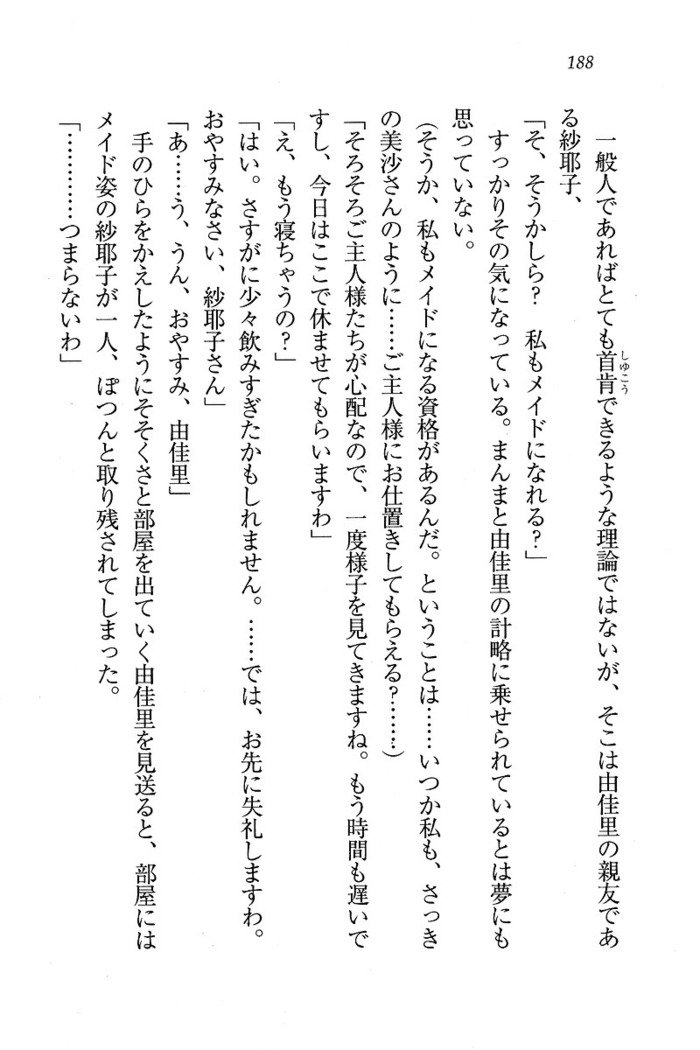 188
一般人であればとても首肯できるような理論ではないが、そこは由佳里の親友であ
しゆこう
る紗耶子、
「そ、そうかしら？　私もメイドになれる？」
すっかりその気になっている。まんまと由佳里の計略に乗せられているとは夢にも
思っていない。
（そうか、私もメイドになる資格があるんだ。ということは……いつか私も、さっき
の美沙さんのように……ご主人様にお仕置きしてもらえる？……）
「そろそろご主人様たちが心配なので、一度様子を見てきますね。もう時間も遅いで
すし、今日はここで休ませてもらいますわ」
「え、もう寝ちゃうの？」
「はい。さすがに少々飲みすぎたかもしれません。……では、お先に失礼しますわ。
おやすみなさい、紗耶子さん」
「あ……う、うん、おやすみ、由佳里」
手のひらをかえしたようにそそくさと部屋を出ていく由佳里を見送ると、部屋には
メイド姿の紗耶子が一人、ぽつんと取り残されてしまった。
「…………つまらないわ」